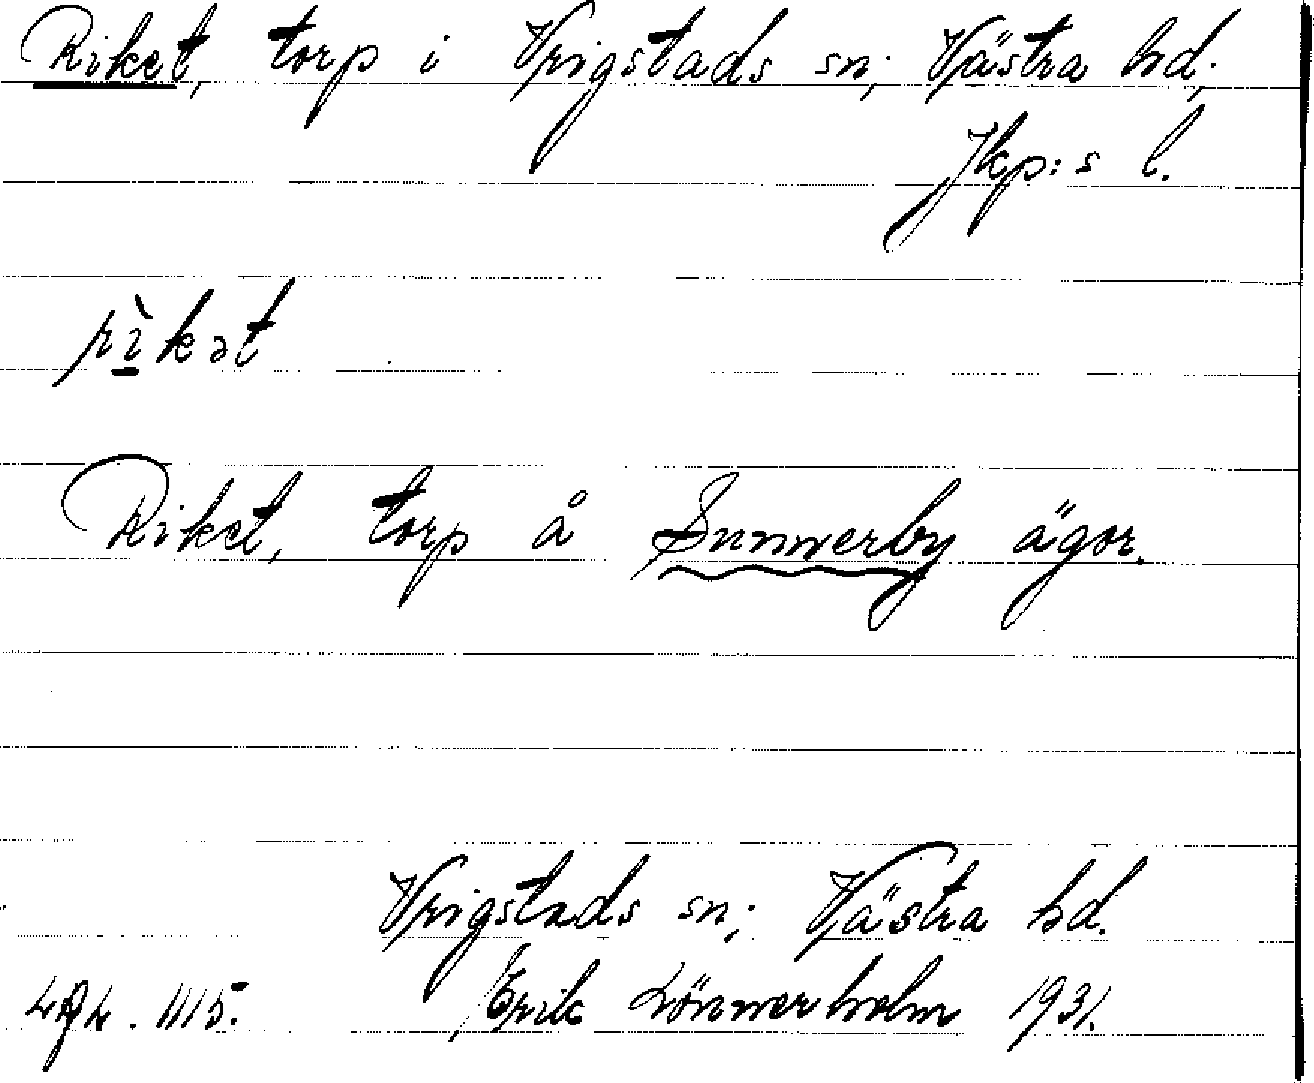 Riket, torp i Vrigstads sn; Västra hd;
Jkp:s l.
rìkət
Riket, torp å Sunnerby ägor.
Vrigstads sn; Västra hd.
Erik Lönnerholm 1931.